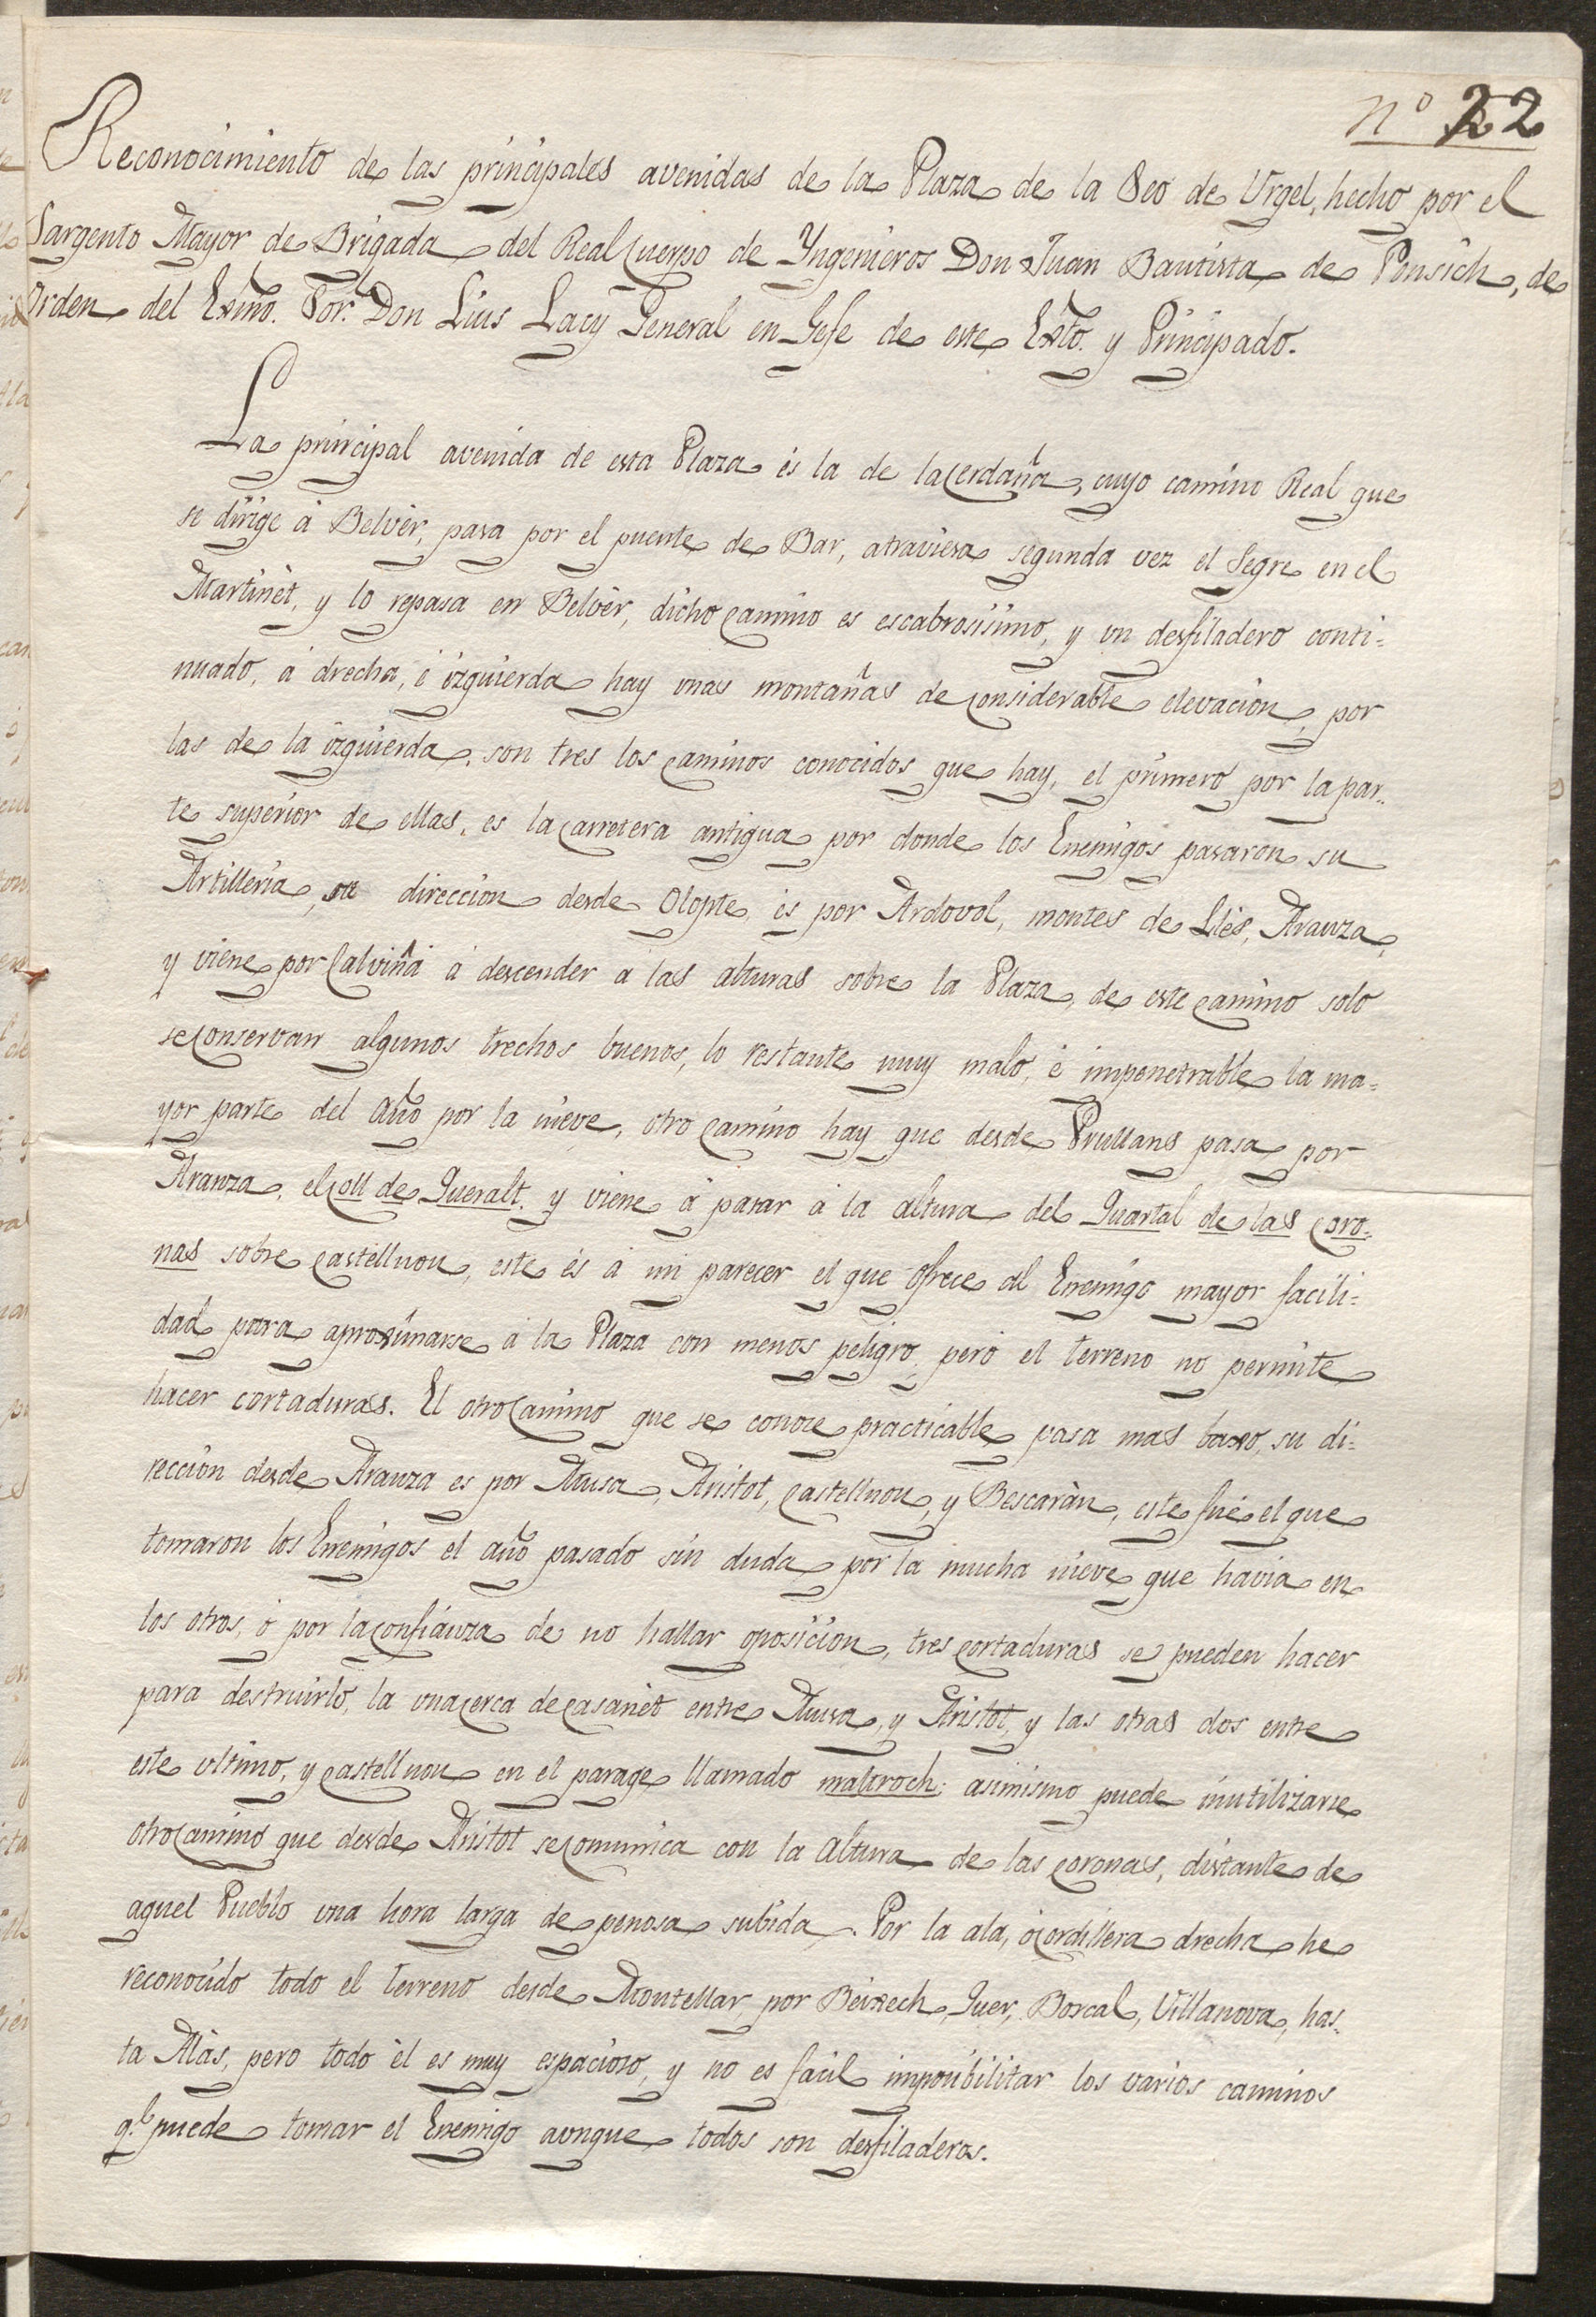 nº 22
Reconocimiento de las principales avenidas de la Plaza de la Seo de Urgel, hecho por el
Sargento Mayor de Brigada del Real Cuerpo de Yngenieros Don Juan Bautista de Ponsich, de
Orden del Exmo. Sor. Don Luis Lacy General en Gefe de este Exto. y Principado.
La principal avenida de esta Plaza és la de la Cerdaña, cuyo camino Real que
se dirige á Belvér, pasa por el puente de Bar, atraviesa segunda vez el Segre en el
Martinét, y lo repasa en Belvér, dicho Camino es escabrosisimo, y un desfiladero conti=
nuado, á drecha, é izquierda hay unas montañas de Considerable elevacion, por
las de la izquierda, son tres los Caminos conocidos que hay, el primero por la par-
te superior de ellas, es la Carretera antigua por donde los Enemigos pasaron su
Artilleria, su direccion desde Olopte, és por Ardovol, montes de Llés, Aranza,
y viene por Calviñá á descender á las alturas sobre la Plaza, de este Camino solo
se Conservan algunos trechos buenos, lo restante muy malo, é impenetrable la ma=
yor parte del Año por la nieve, otro Camino hay que desde Prullans pasa por
Aranza, el Coll de Queralt, y viene á parar á la altura del Quartal de las Coro=
nas sobre Castellnou, este és á mi parecer el que ofrece al Enemigo mayor facili=
dad para aproximarse á la Plaza con menos peligro, pero el terreno no permite
hacer cortaduras. El otro Camino que se conoce practicable pasa mas baxo, su di=
reccion desde Aranza es por Musa, Aristot, Castellnou, y Bescarán, este fué el que
tomaron los Enemigos el año pasado sin duda por la mucha nieve que havia en
los otros, ó por la Confianza de no hallar oposicion, tres Cortaduras se pueden hacer
para destruirlo, la una Cerca de Casanét entre Musa, y Aristot, y las otras dos entre
este ultimo, y Castellnou en el parage llamado maltroch: asimismo puede inutilizarse
otro Camino que desde Aristot se Comunica con la Altura de las Coronas, distante de
aquel Pueblo una hora larga de penosa subida. Por la ala, ó Cordillera drecha he
reconocido todo el terreno desde Montellar, por Beixech, Quer, Boscal, Villanova, has-
ta Alás, pero todo él es muy espacioso, y no es facil imposibilitar los varios caminos
q.e puede tomar el Enemigo aunque todos son desfiladeros.